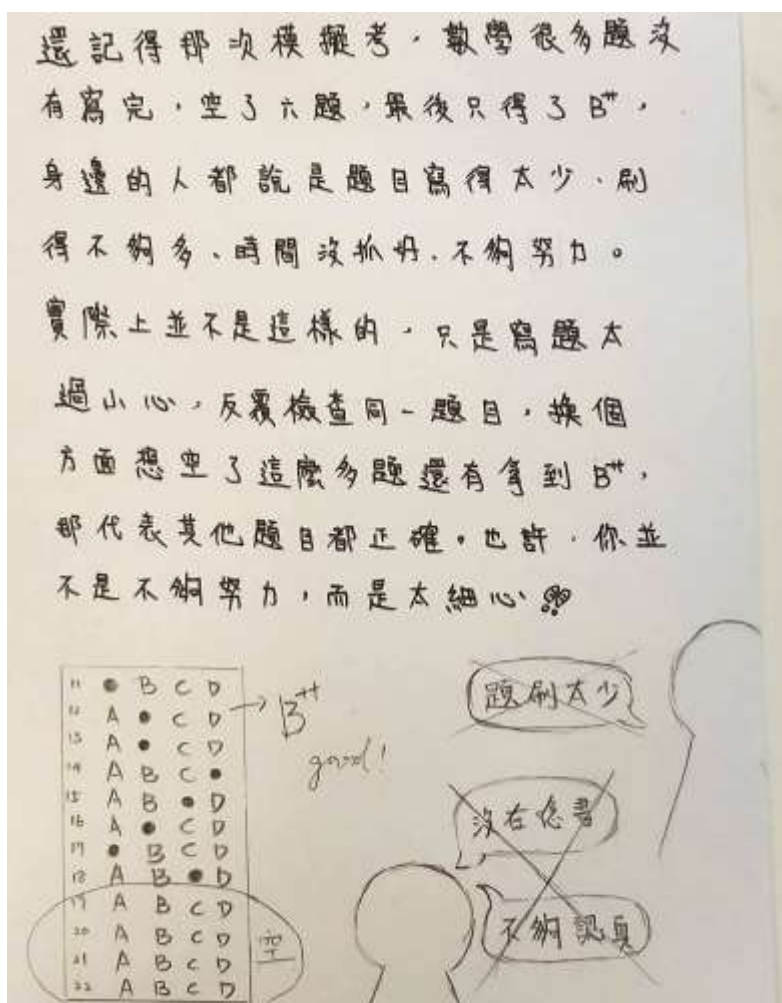 還記得那次模擬考，數學很多題沒
有寫完，空了六題，最後只得了B++，
身邊的人都說是題目寫得太少、刷
得不夠多、時間沒抓好、不夠努力。
實際上並不是這樣的，只是寫題太
過小心，反覆檢查同一題目，換個
方面想空了這麼多題還有拿到B++，
那代表其他題目都正確。也許，你並
不是不夠努力，而是太細心
11 ● B C D
12 A ● C D
13 A ● C D
14 A B C ●
15 A B ● D
16 A ● C D
17 ● B C D
18 A B ● D
19 A B C D
20 A B C D
21 A B C D
22 A B C D
空
→ B++
good!
題刷太少
沒在念書
不夠認真